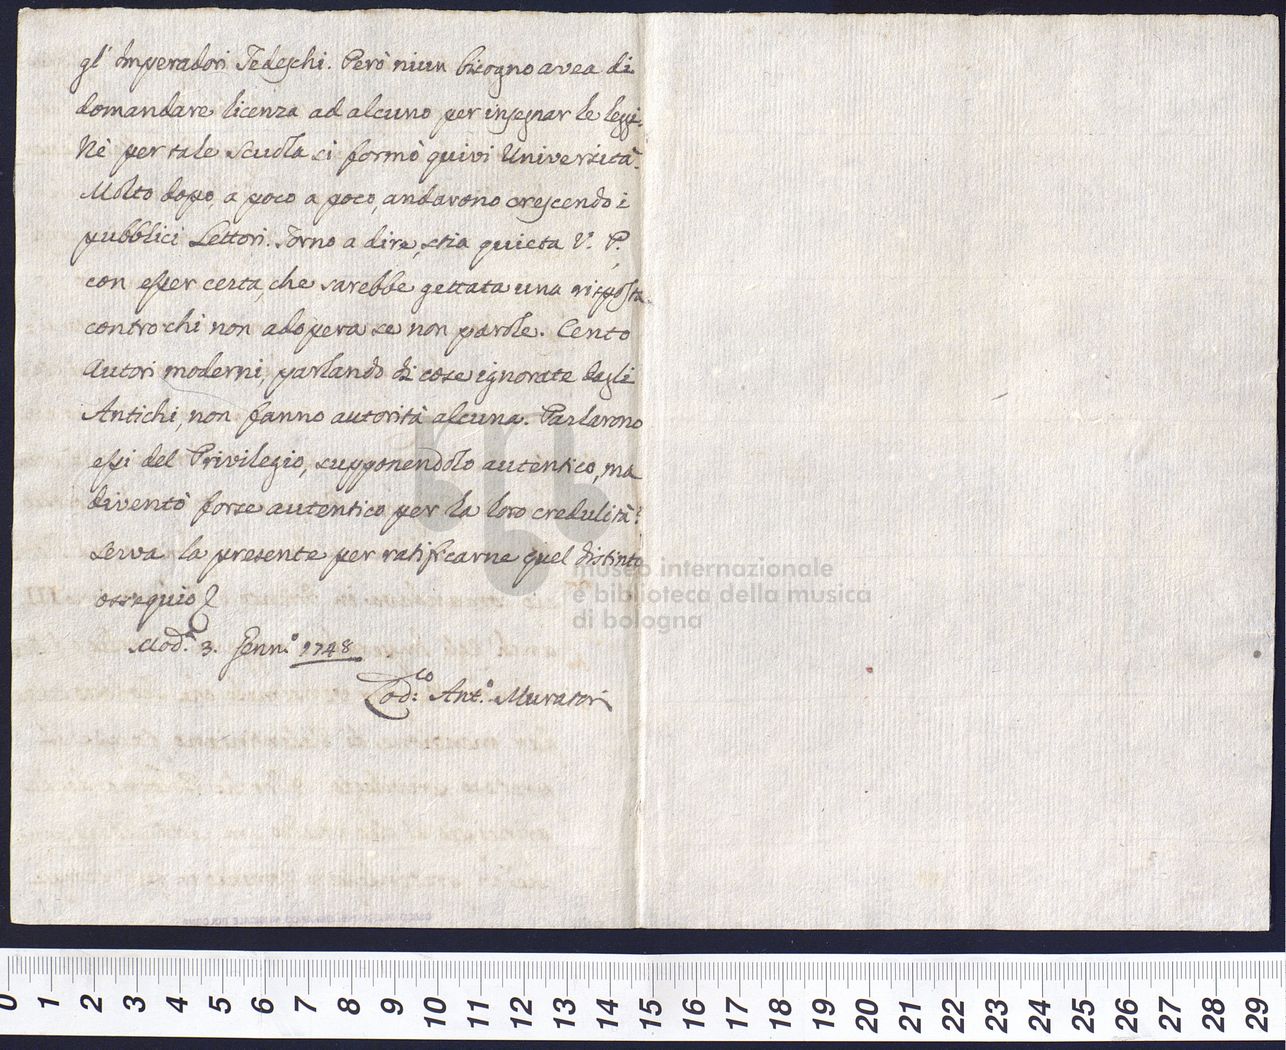 gl' Imperadori Tedeschi. Però niun bisogno avea di
domandare licenza ad alcuno per insegnar le leggi.
Nè per tale scuola si formò quivi Università.
Molto dopo, a poco a poco, andarono crescendo i
pubblici Lettori. Torno a dire, stia quieta V. P.,
con esser certa, che sarebbe gettata una risposta
contro chi non adopera se non parole. Cento
Autori moderni, parlando di cose ignorate dagli
Antichi, non fanno autorità alcuna. Parlarono
essi del Privilegio, supponendolo autentico, ma
diventò forse autentico per la loro credulità?
Serva la presente per ratificarne quel distinto
ossequio
Mod.ª 3. Genn.º 1748
Lod:co Ant.º Muratori
museo internazionale
e biblioteca della musica
di bologna
0 1 2 3 4 5 6 7 8 9 10 11 12 13 14 15 16 17 18 19 20 21 22 23 24 25 26 27 28 29